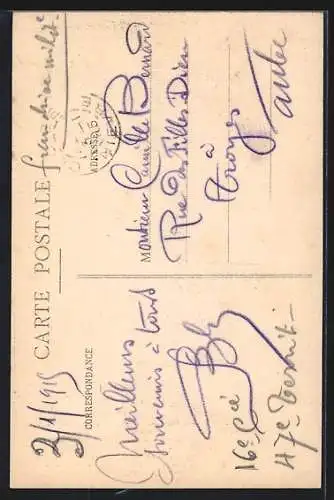 franchise milit.
CARTE POSTALE
3/1/1915
CORRESPONDANCE
Meilleurs
souvenirs à tous
16e Cie
47e Territ.
ADRESSE
Monsieur Camille Bernard
Rue des Filles Dieu
à
Troyes
Aube